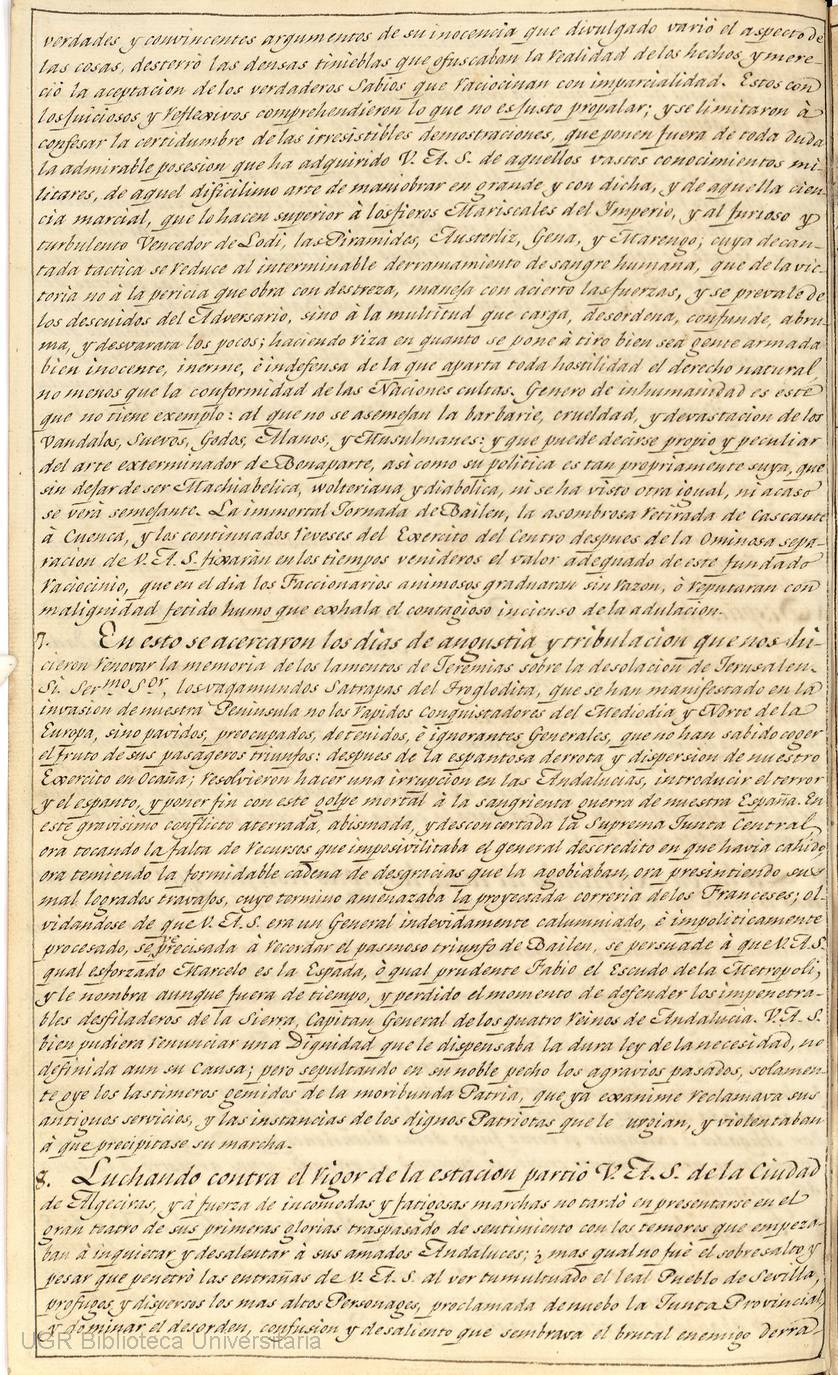 verdades y convincentes argumentos de su inocencia que divulgado varió el aspecto de
las cosas, desterró las densas tinieblas que ofuscaban la realidad de los hechos, y mere-
ció la aceptacion de los verdaderos Sabios que raciocinan con imparcialidad. Estos con
los juiciosos y reflexivos comprehendieron lo que no es justo propalar; y se limitaron à
confesar la certidumbre de las irresistibles demostraciones, que ponen fuera de toda duda
la admirable posesion que ha adquirido V. A. S. de aquellos vastos conocimientos mi-
litares, de aquel dificilimo arte de maniobrar en grande y con dicha, y de aquella cien-
cia marcial, que lo hacen superior à los fieros Mariscales del Ymperio, y al furioso y
turbulento Vencedor de Lodi, las Piramides, Austerliz, Gena, y Marengo; cuya decan-
tada tactica se reduce al interminable derramamiento de sangre humana, que de la vic-
toria no à la pericia que obra con destreza, maneja con acierto las fuerzas, y se prevale de
los descuidos del Adversario, sino à la multitud que carga, desordena, confunde, abru-
ma, y desvarata los pocos; haciendo riza en quanto se pone à tiro bien sea gente armada
bien inocente, inerme, è indefensa de la que aparta toda hostilidad el derecho natural
no menos que la conformidad de las Naciones cultas. Genero de inhumanidad es este
que no tiene exemplo: al que no se asemejan la barbarie, crueldad, y devastacion de los
Vandalos, Suevos, Godos, Alanos, y Musulmanes: y que puede decirse propio y peculiar
del arte exterminador de Bonaparte, asi como su politica es tan propriamente suya, que
sin dejar de ser Machiabelica, wolteriana y diabolica, ni se ha visto otra igual, ni acaso
se verá semejante. La immortal Jornada de Bailen, la asombrosa retirada de Cascante
à Cuenca, y los continuados reveses del Exercito del Centro despues de la Ominosa sepa-
racion de V. A. S. fixarán en los tiempos venideros el valor adequado de este fundado
raciocinio, que en el dia los Faccionarios animosos graduaran sin razon, ò reputaran con
malignidad fetido humo que exhala el contagioso incienso de la adulacion.
7. En esto se acercaron los dias de angustia y tribulacion que nos hi-
cieron renovar la memoria de los lamentos de Jeremias sobre la desolacion de Jerusalen.
Si. Ser.mo S.or, los vagamundos Satrapas del Troglodita, que se han manifestado en la
invasion de nuestra Peninsula no los rapidos Conquistadores del Mediodia y Norte de la
Europa, sino pavidos, preocupados, detenidos, è ignorantes Generales, que no han sabido coger
el fruto de sus pasageros triunfos: despues de la espantosa derrota y dispersion de nuestro
Exercito en Ocaña; resolvieron hacer una irrupcion en las Andalucias, introducir el terror
y el espanto, y poner fin con este golpe mortal à la sangrienta guerra de nuestra España. En
este gravisimo conflicto aterrada, abismada, y desconcertada la Suprema Junta Central,
ora tocando la falta de recursos que imposivilitaba el general descredito en que havia cahido,
ora temiendo la formidable cadena de desgracias que la agobiaban, ora presintiendo sus
mal logrados travajos, cuyo termino amenazaba la proyectada correria de los Franceses; ol-
vidandose de que V. A. S. era un General indevidamente calumniado, è impoliticamente
procesado, se precisada à recordar el pasmoso triunfo de Bailen, se persuade à que V. A. S.
qual esforzado Marcelo es la Espada, ò qual prudente Fabio el Escudo de la Metropoli,
y le nombra aunque fuera de tiempo, y perdido el momento de defender los impenetra-
bles desfiladeros de la Sierra, Capitan General de los quatro reinos de Andalucia. V. A. S.
bien pudiera renunciar una Dignidad que le dispensaba la dura ley de la necesidad, no
definida aun su Causa; pero sepultando en su noble pecho los agravios pasados, solamen-
te oye los lastimeros gemidos de la moribunda Patria, que ya exanime reclamava sus
antiguos servicios, y las instancias de los dignos Patriotas que le urgian, y violentaban
à que precipitase su marcha.
8. Luchando contra el rigor de la estacion partió V. A. S. de la Ciudad
de Algeciras, y à fuerza de incomodas y fatigosas marchas no tardò en presentarse en el
gran teatro de sus primeras glorias traspasado de sentimiento con los temores que empeza-
ban à inquietar y desalentar à sus amados Andaluces; ¿mas qual no fuè el sobresalto, y
pesar que penetrò las entrañas de V. A. S. al ver tumultuado el leal Pueblo de Sevilla,
profugos, y dispersos los mas altos Personages, proclamada de nuebo la Junta Provincial,
y dominar el desorden, confusion y desaliento que sembrava el brutal enemigo derra-
UGR Biblioteca Universitaria